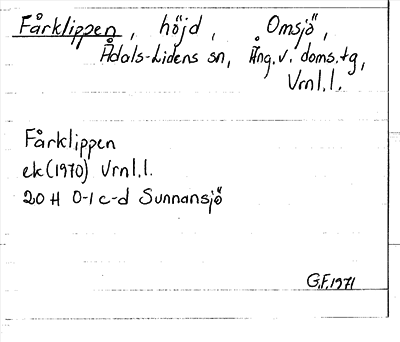 Fårklippen, höjd, Omsjö,
Ådals-Lidens sn, Ång.v. doms.tg,
Vrnl.l.
Fårklippen
ek(1970) Vrnl.l.
20 H 0-1 c-d Sunnansjö
G.F.1971